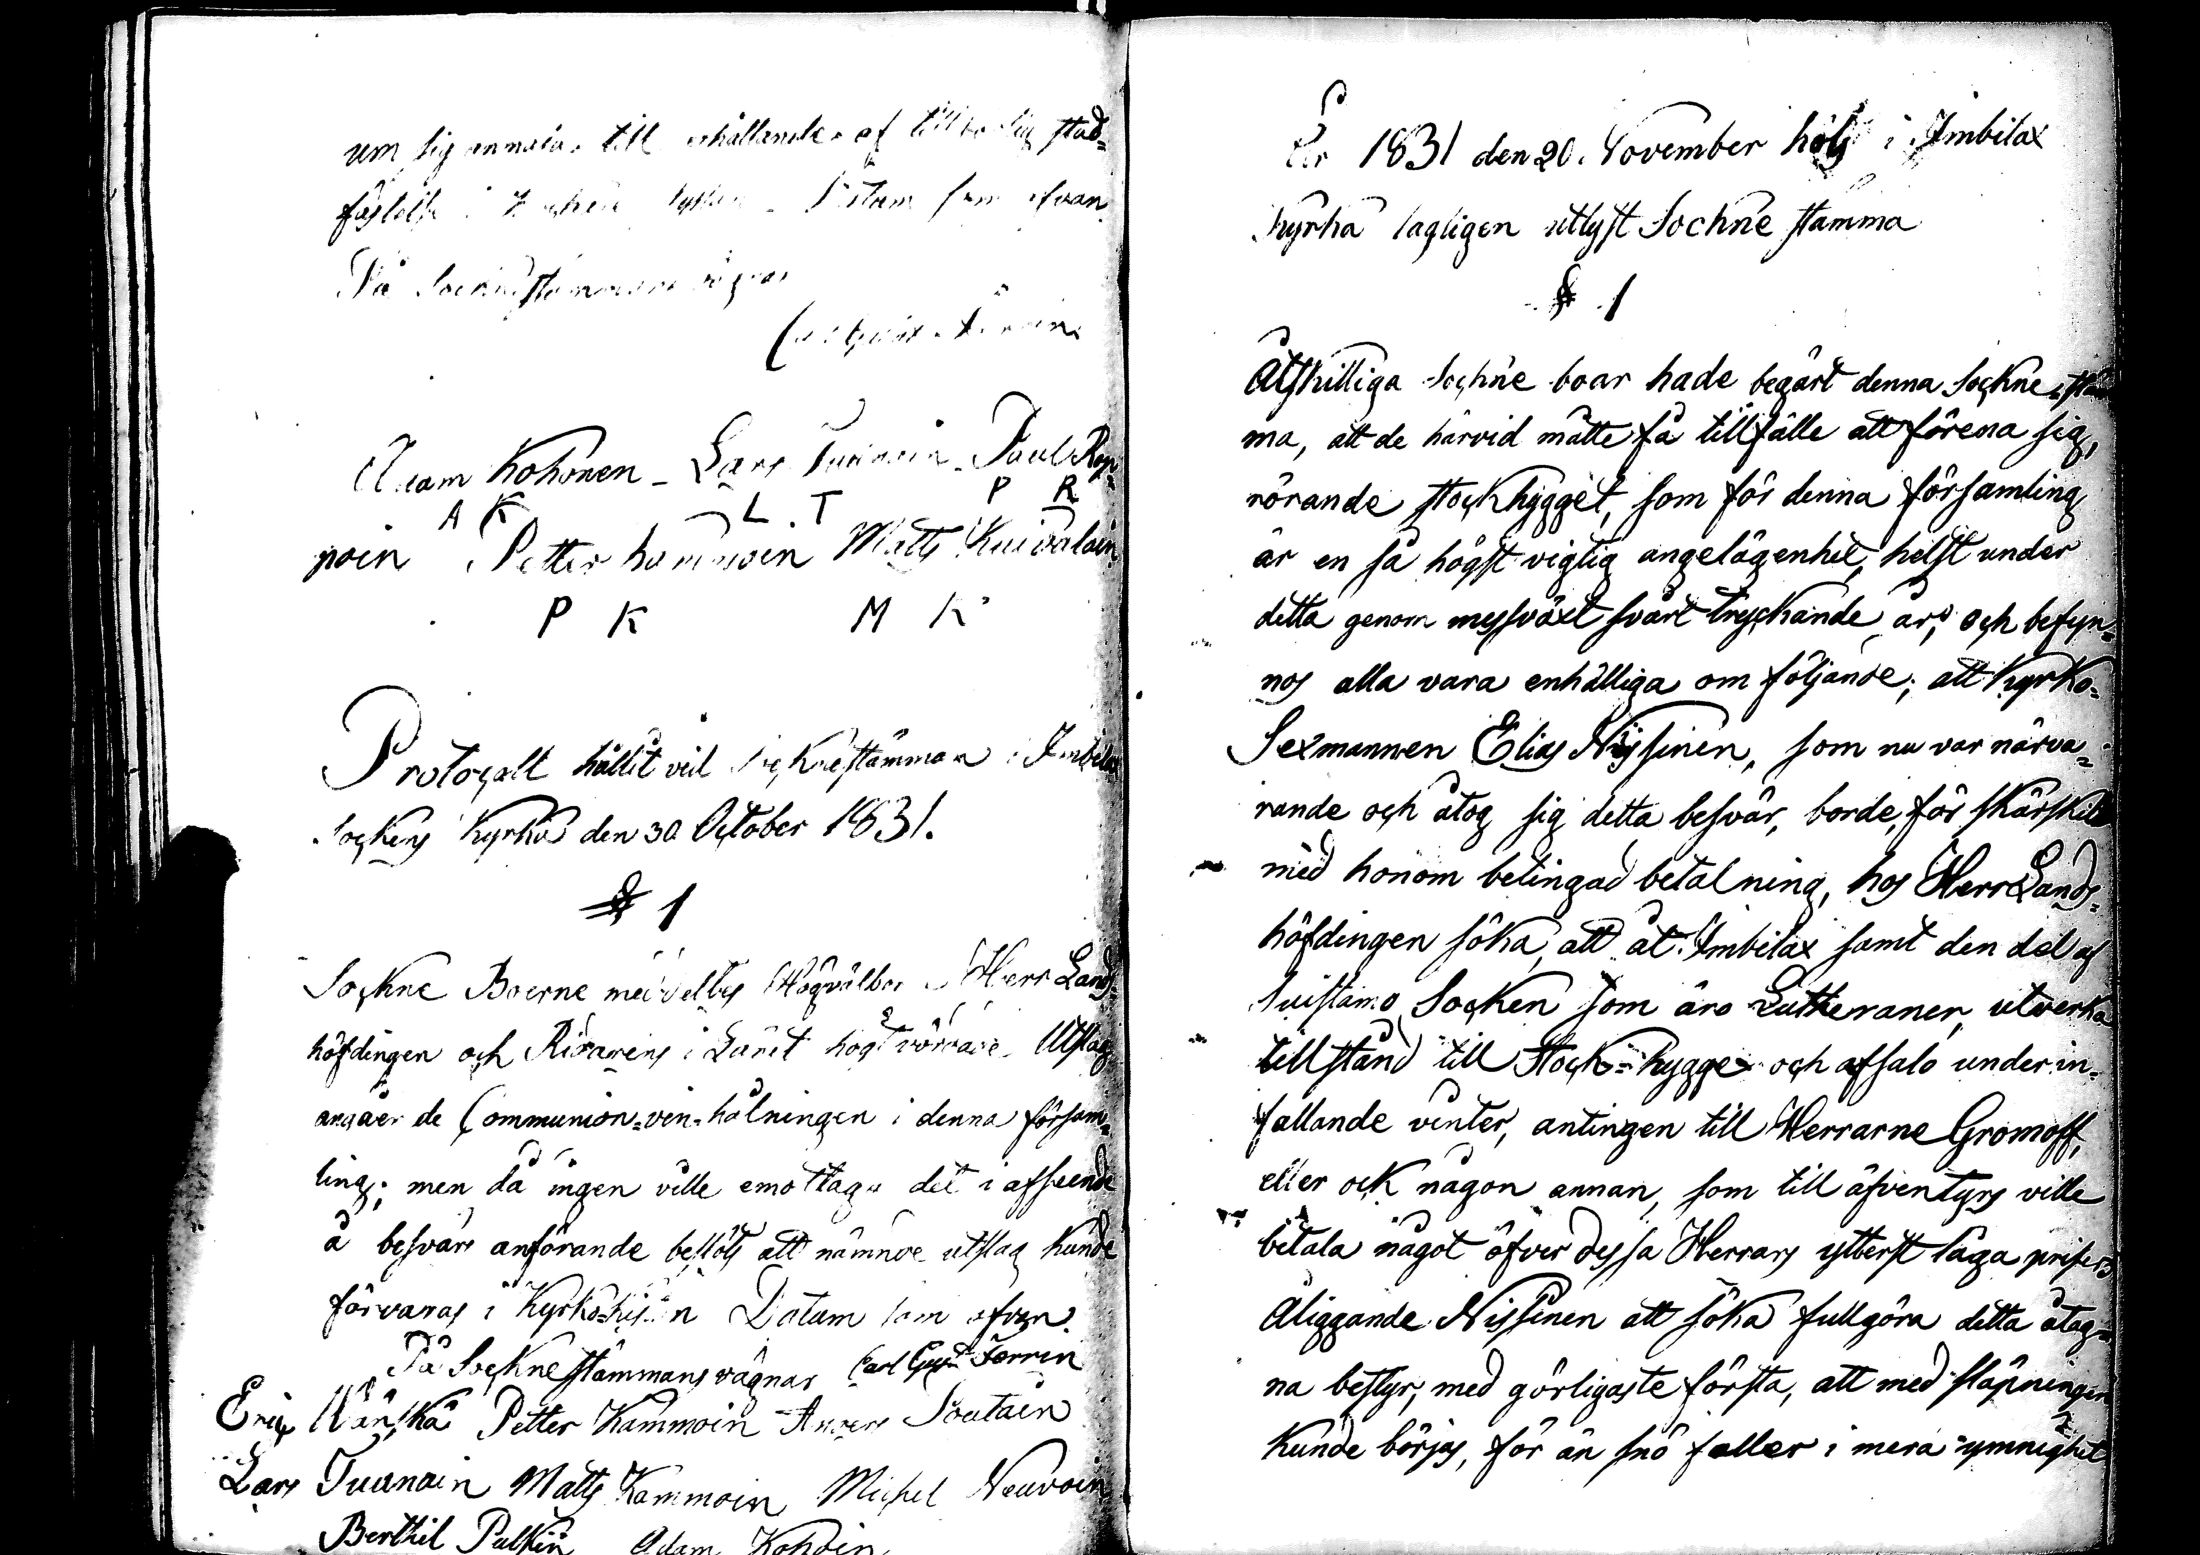 um sig anmäla till erhållande af tillbörlig stad-
fästelse i Datum som ofvan.
På Sockne stämmans vägnar
Adam Kohonen - Lars Tuunain - Paul Rep-
A K L. T P R
poin Petter Kammoin Matts Kuivalain
P K M K
Protocoll hållit vid Socknestämman i Imbilax
Sockens Kyrka den 30 October 1831.
§ 1
Sockne Boerne meddeltes Högvälborne Herr Lands-
höfdingen och Riddarens i Länet högt vördade Utslag
angåen de Communion-vin-hålningen i denna försam-
ling; men då ingen ville emottaga det i afseende
å besvärs anförande beslöts att nämnde utslag kunde
förvaras i Kyrko-kistan Datum som ofvan.
På Sockne stämmans vägnar Carl Gust Ferrin
Eric Härskä Petter Kammoin Anders Soutain
Lars Tuunain Matts Kammoin Michel Neuvoin
Berthil Pulkin Adam Kohoin
År 1831 den 20. November höls i Imbilax
Kyrka lagligen utlyst Sochne stämma
§ 1
Åtskilliga Sochne boar hade begärt denna Sockne-stäm
ma, att de härvid måtte få tillfälle att förena sig,
rörande stockhygget, som för denna församling
är en så högst vigtig angelägenhet, helst under
detta genom missväxt svårt tryckande år; och befun-
nos alla vara enhälliga om följande; att Kyrko-
Sexmannen Elias Nissinen, som nu var närva-
rande och åtog sig detta besvär, borde, för skärskild
med honom betingad betalning, hos Herr Lands-
höfdingen söka, att åt Imbilax samt den del af
Suistamo Socken som äro Lutheraner, utverka
tillstånd till Stock-hygge och afsalo under in-
fallande vinter, antingen till Herrarne Gromoff,
eller ock någon annan, som till äfventyrs ville
betala något öfver dessa Herrars ytterst låga priser
Åliggande Nissinen att söka fullgöra detta åtag-
na bestyr, med görligaste första, att med släpningen
kunde börjas, för än snö faller i mera ymnighet